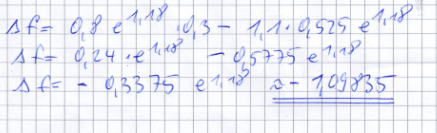 Δf = 0,8 e^1,18 · 0,3 - 1,1 · 0,525 e^1,18
Δf = 0,24 · e^1,18 - 0,5775 e^1,18
Δf = - 0,3375 e^1,18 ≈ - 1,09835